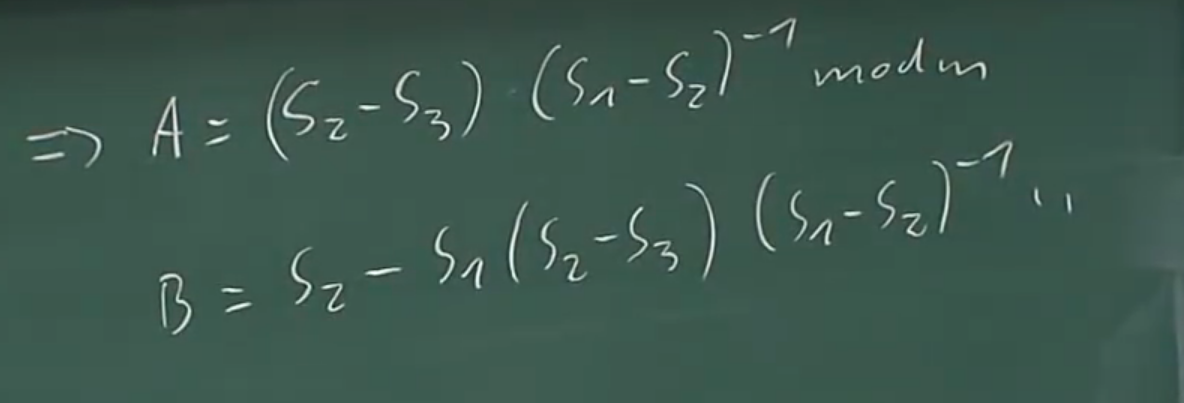 => A = (S₂-S₃) · (S₁-S₂)⁻¹ mod m
B = S₂ - S₁(S₂-S₃) (S₁-S₂)⁻¹ ''